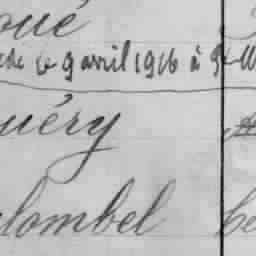 oué
le 9 avril 1916 à St
uéry
lombel